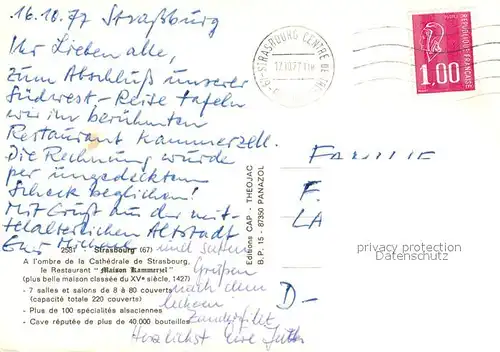 16.10.77 Straßburg
Ihr Lieben alle,
zum Abschluß unserer
Südwest-Reise tafeln
wir im berühmten
Restaurant Kammerzell.
Die Rechnung wurde
per ungedecktem
Scheck beglichen!
Mit Gruß aus der mit-
telalterlichen Altstadt
Euer Michael
und guten
Grüßen
nach dem
leckeren
Zanderfilet
Herzlichst Eure
2581 Strasbourg (67)
A l'ombre de la Cathédrale de Strasbourg,
le Restaurant "Maison Kammerzel"
(plus belle maison classée du XVe siècle, 1427)
- 7 salles et salons de 8 à 80 couverts
(capacité totale 220 couverts)
- Plus de 100 spécialités alsaciennes
- Cave réputée de plus de 40.000 bouteilles
Editions CAP - THEOJAC
B.P. 15 - 87350 PANAZOL
STRASBOURG CENTRE
POSTES
1,00
REPUBLIQUE FRANÇAISE
FAMILIE
F.
LA
D-
privacy protection
Datenschutz